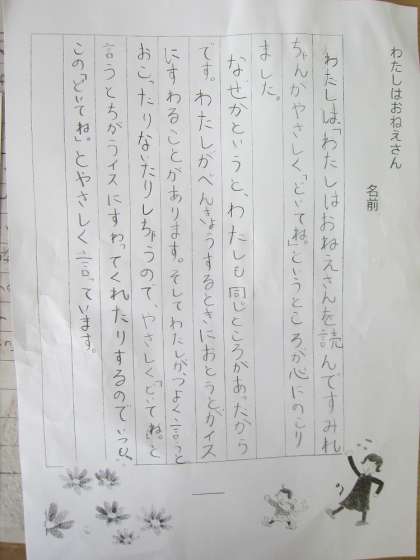 わたしはおねえさん
名前
わたしは、「わたしはおねえさんを読んですみれ
ちゃんがやさしく、「どいてね。」というところが心にのこり
ました。
なぜかというと、わたしも同じところがあったから
です。わたしがべんきょうするときにおとうとがイス
にすわることがあります。そしてわたしが、つよく言うと
おこったりないたりしちゃうので、やさしく「どいてね。」と
言うとちがうイスにすわってくれたりするのでいつも
この「どいてね。」とやさしく言っています。